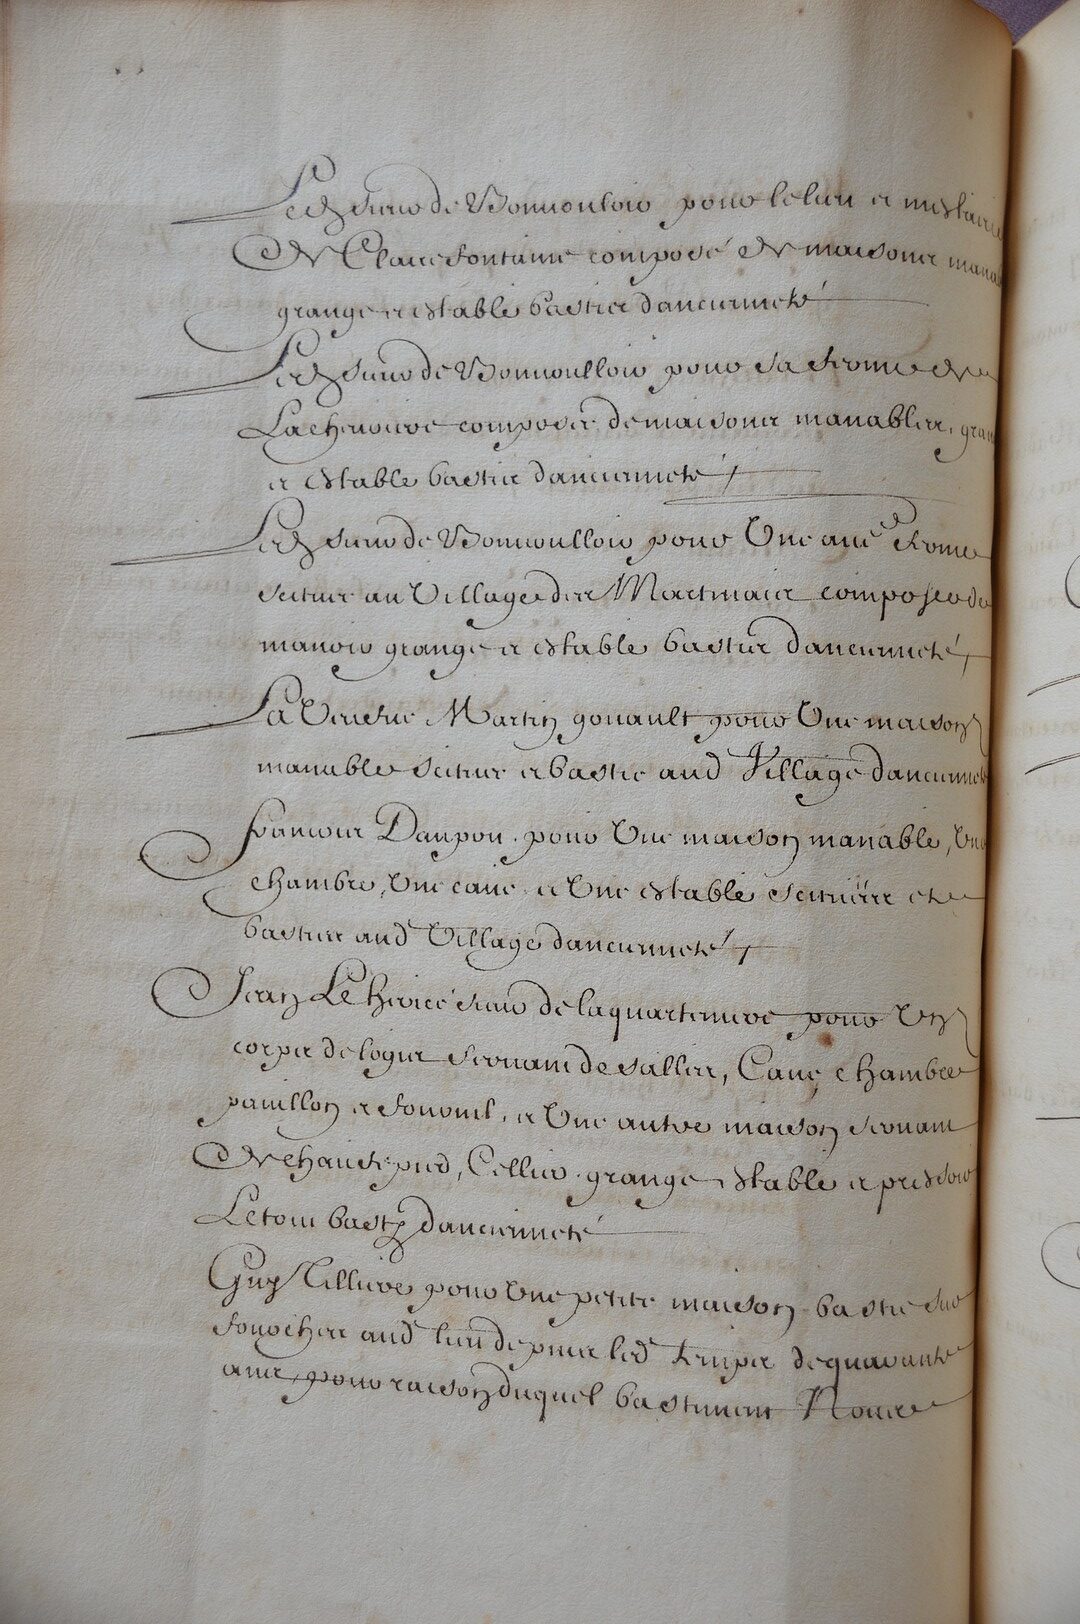 Led sieur de Bonnouloir pour le lieu et mestairie
de Clairefontaine composé de maisons
grange et estable basties d'ancienneté
Led sieur de Bonnoulloir pour sa ferme de
composée de maisons manables,
et estable basties d'ancienneté
Led sieur de Bonnoulloir pour Une autre ferme
scituée au Village des composée de
manoir grange et estable basties d'ancienneté
La Veufve Martin gouault pour Une maison
manable scituée et bastie aud Village d'ancienneté
francois Daupou pour Une maison manable, Une
chambre, Une cave et Une estable scituées et
basties aud Village d'ancienneté
Jean Le hericé sieur de la quarteniere pour Un
corps de logis servant de salles, Cave, chambre
pavillon et fournil, et Une autre maison servant
de chauffepied, Cellier, grange, estable et pressoir
Le tout basty d'ancienneté
Guy Tilliere pour Une petite maison bastie sur
fourches aud lieu depuis led temps de quarante
ans, pour raison duquel bastiment Nous